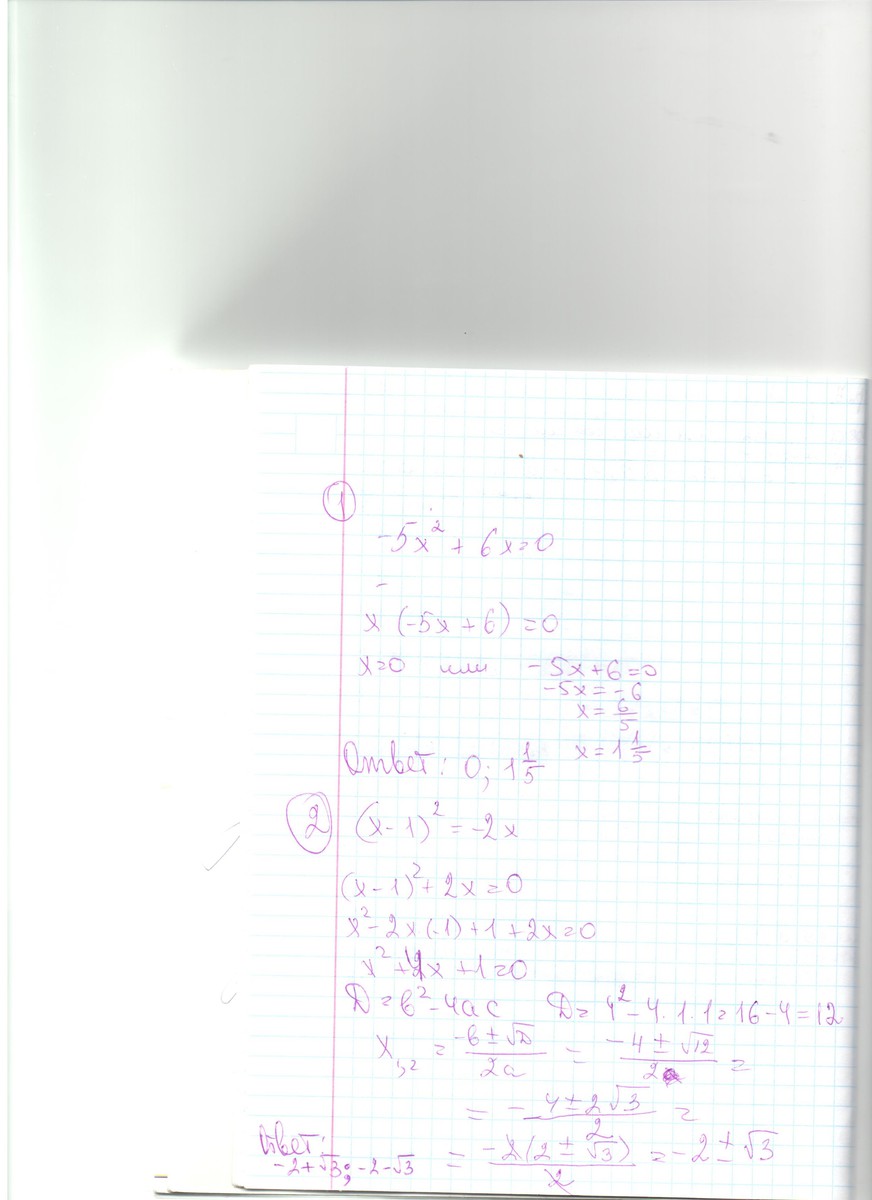 1
-5x² + 6x=0
-
x (-5x+6)=0
x=0 или -5x+6=0
-5x=-6
x=6/5
x=1 1/5
Ответ: 0; 1 1/5
2 (x-1)² = -2x
(x-1)²+2x=0
x²-2x(-1)+1+2x=0
x²+4x+1=0
D=b²-4ac D=4²-4·1·1=16-4=12
x₁,₂ = -b±√D/2a = -4±√12/2 =
= -4±2√3/2 =
= -2(2±√3)/2 = -2±√3
Ответ:
-2+√3; -2-√3